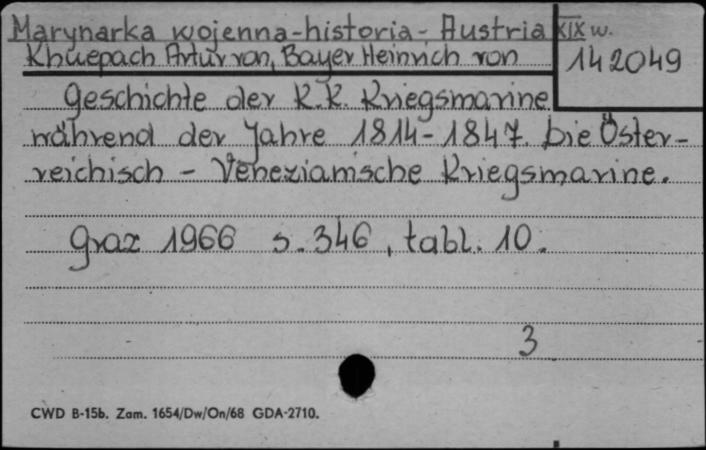 Marynarka wojenna-historia- Austria XIX w.
Khuepach Artur von, Bayer Heinrich von
142049
Geschichte der K.K. Kriegsmarine
während der Jahre 1814-1847. Die Öster-
reichisch - Venezianische Kriegsmarine.
Graz 1966 s. 346, tabl. 10.
3
CWD B-15b. Zam. 1654/Dw/On/68 GDA-2710.